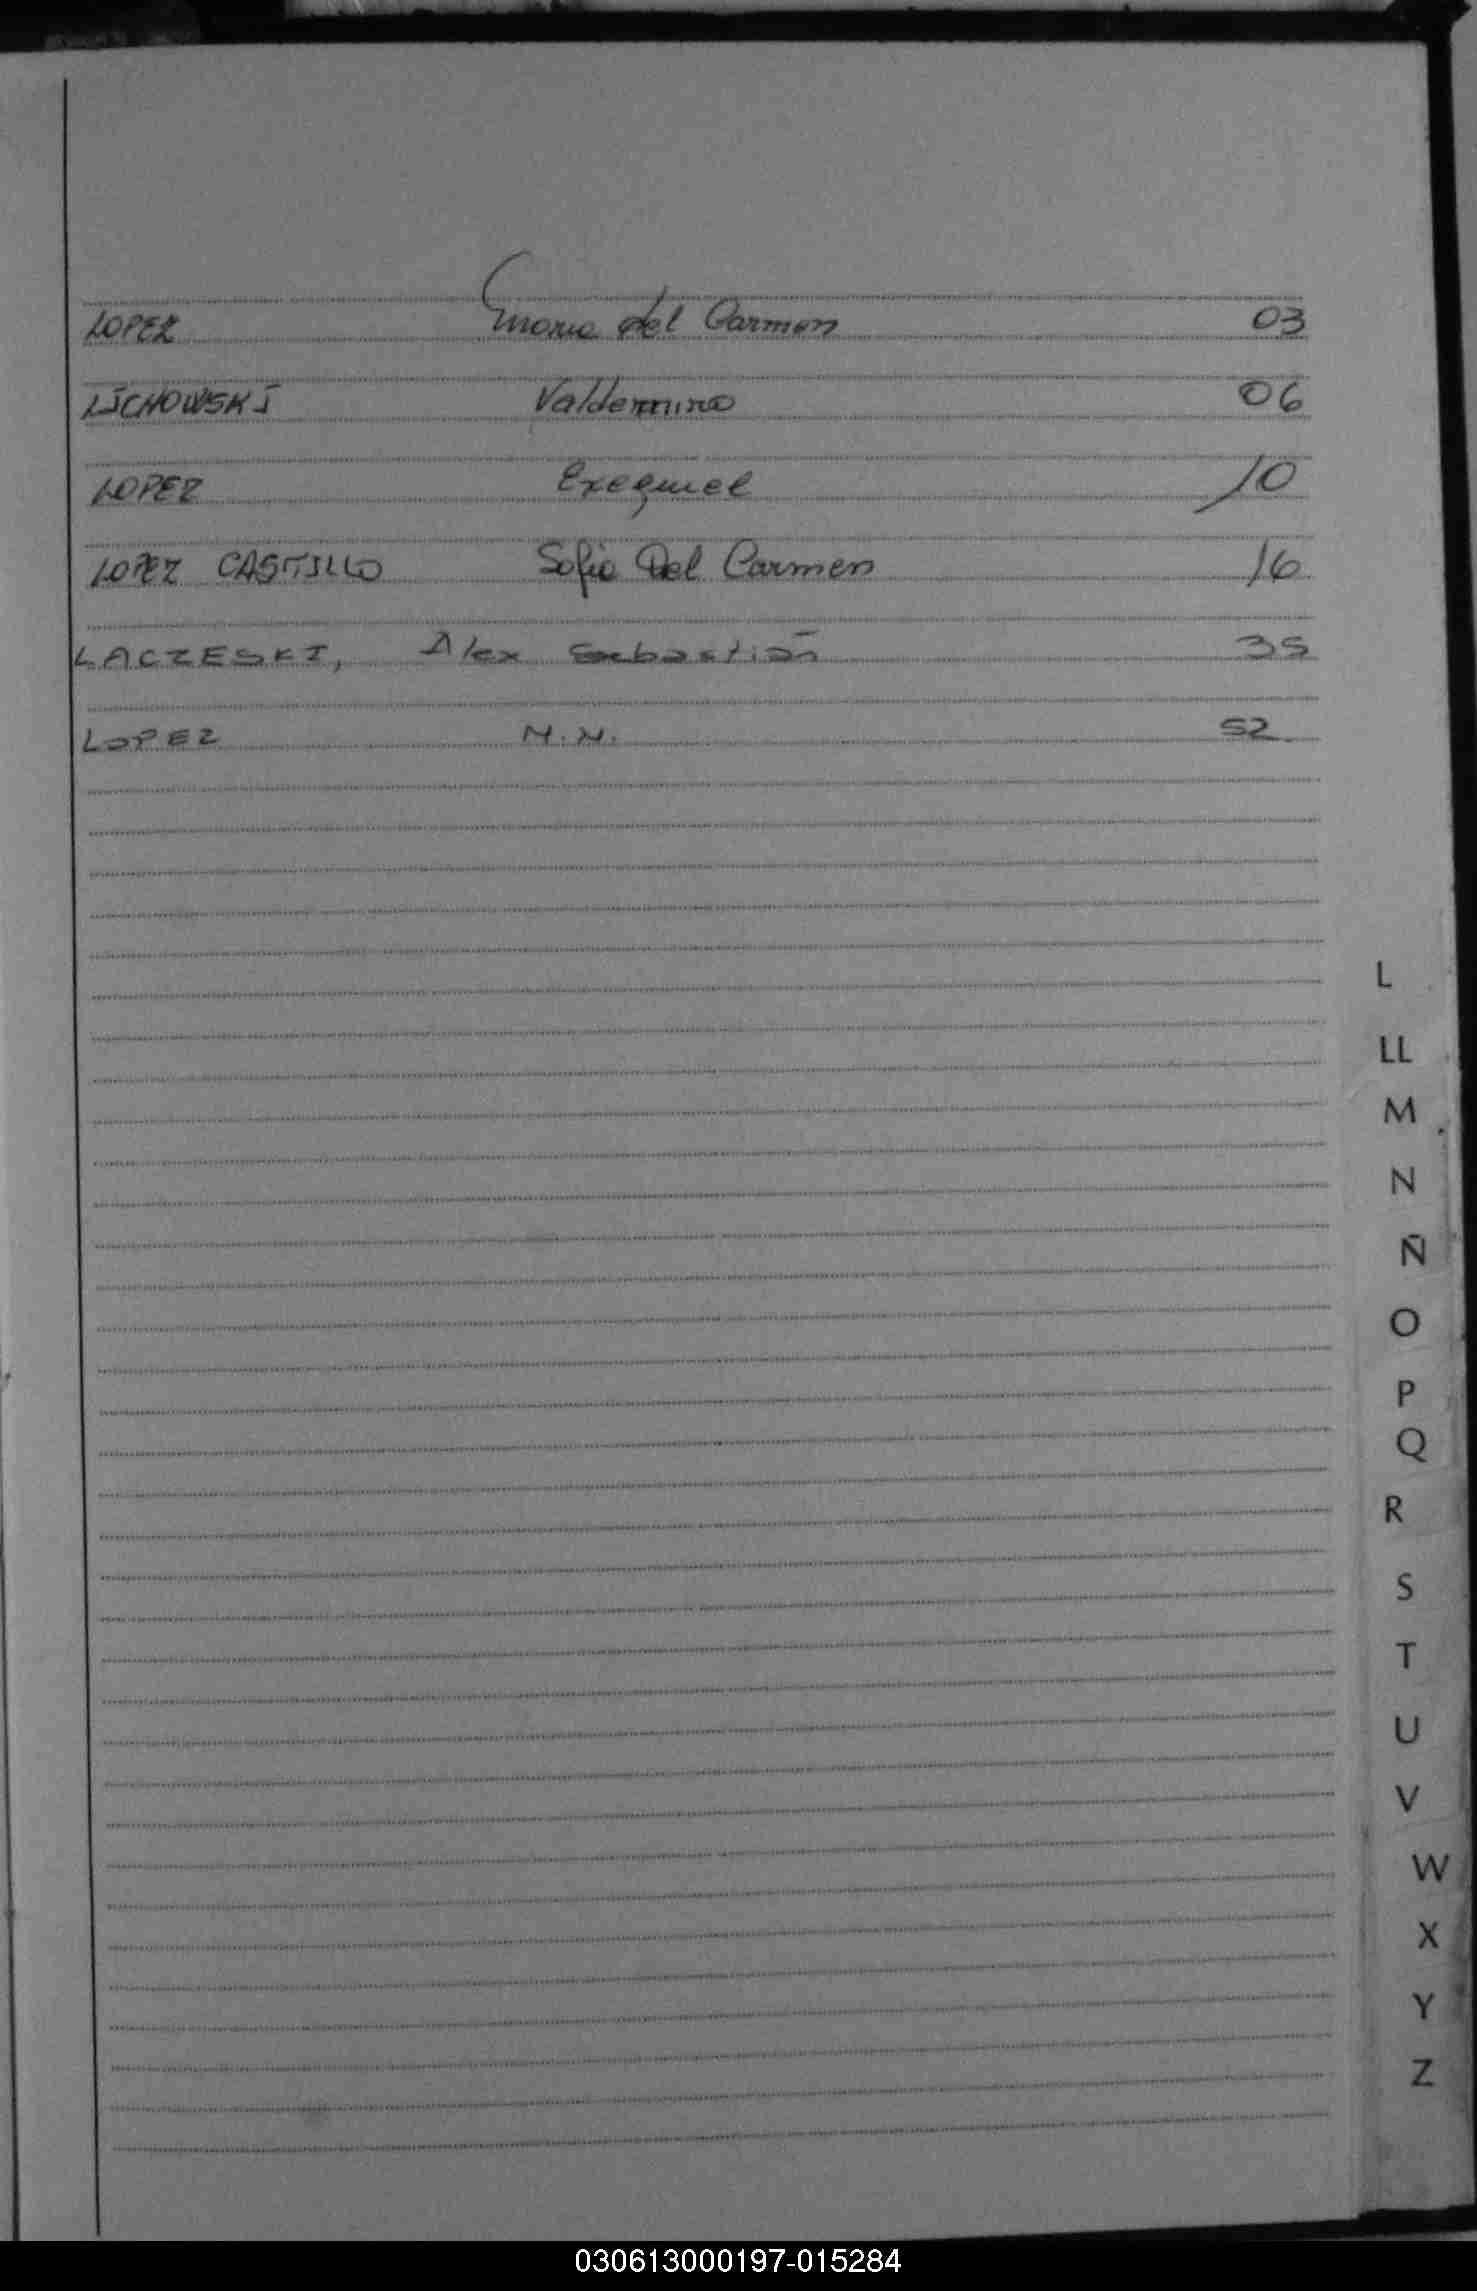 LOPEZ Maria del Carmen 03
LICHOWSKI Valdemiro 06
LOPEZ Exequiel 10
LOPEZ CASTILLO Sofia Del Carmen 16
LACZESKI, Alex Sebastián 35
LOPEZ N.N. 52
L
LL
M
N
Ñ
O
P
Q
R
S
T
U
V
W
X
Y
Z
030613000197-015284